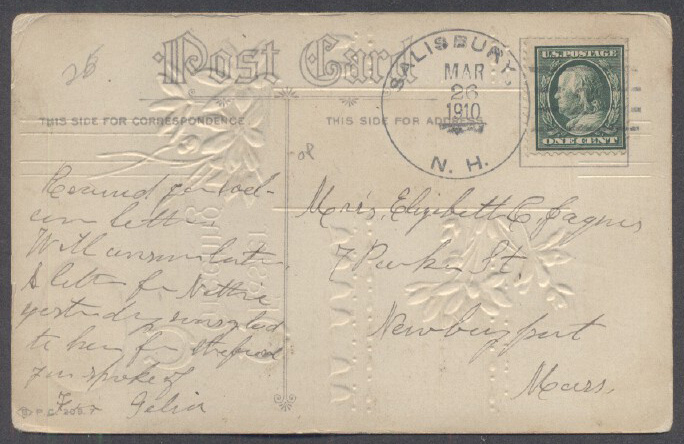 25
Post Card
THIS SIDE FOR CORRESPONDENCE
THIS SIDE FOR ADDRESS
SALISBURY,
MAR
26
1910
N. H.
U.S. POSTAGE
ONE CENT
Received your wel-
com letter.
Will answer later.
A letter from Nettie
yesterday was glad
to hear from
you spoke of
From
Elizabeth C.
7 Parker St.
Newburyport
Mass.